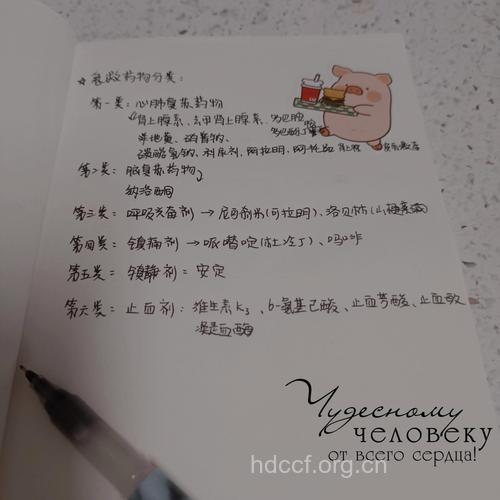 ☆ 急救药物分类:
第一类: 心肺复苏药物
肾上腺素、去甲肾上腺素、多巴胺
多巴酚丁胺
洋地黄、硝普钠、
碳酸氢钠、利尿剂、阿拉明、阿托品
第二类: 脑复苏药物
纳洛酮
第三类: 呼吸兴奋剂 → 尼可刹米(可拉明)、洛贝林(山梗菜碱)
第四类: 镇痛剂 → 哌替啶(杜冷丁)、吗啡
第五类: 镇静剂 = 安定
第六类: 止血剂: 维生素K3、6-氨基己酸、止血芳酸、止血敏
凝血酶
Чудесному
человеку
от всего сердца!
hdccf.org.cn